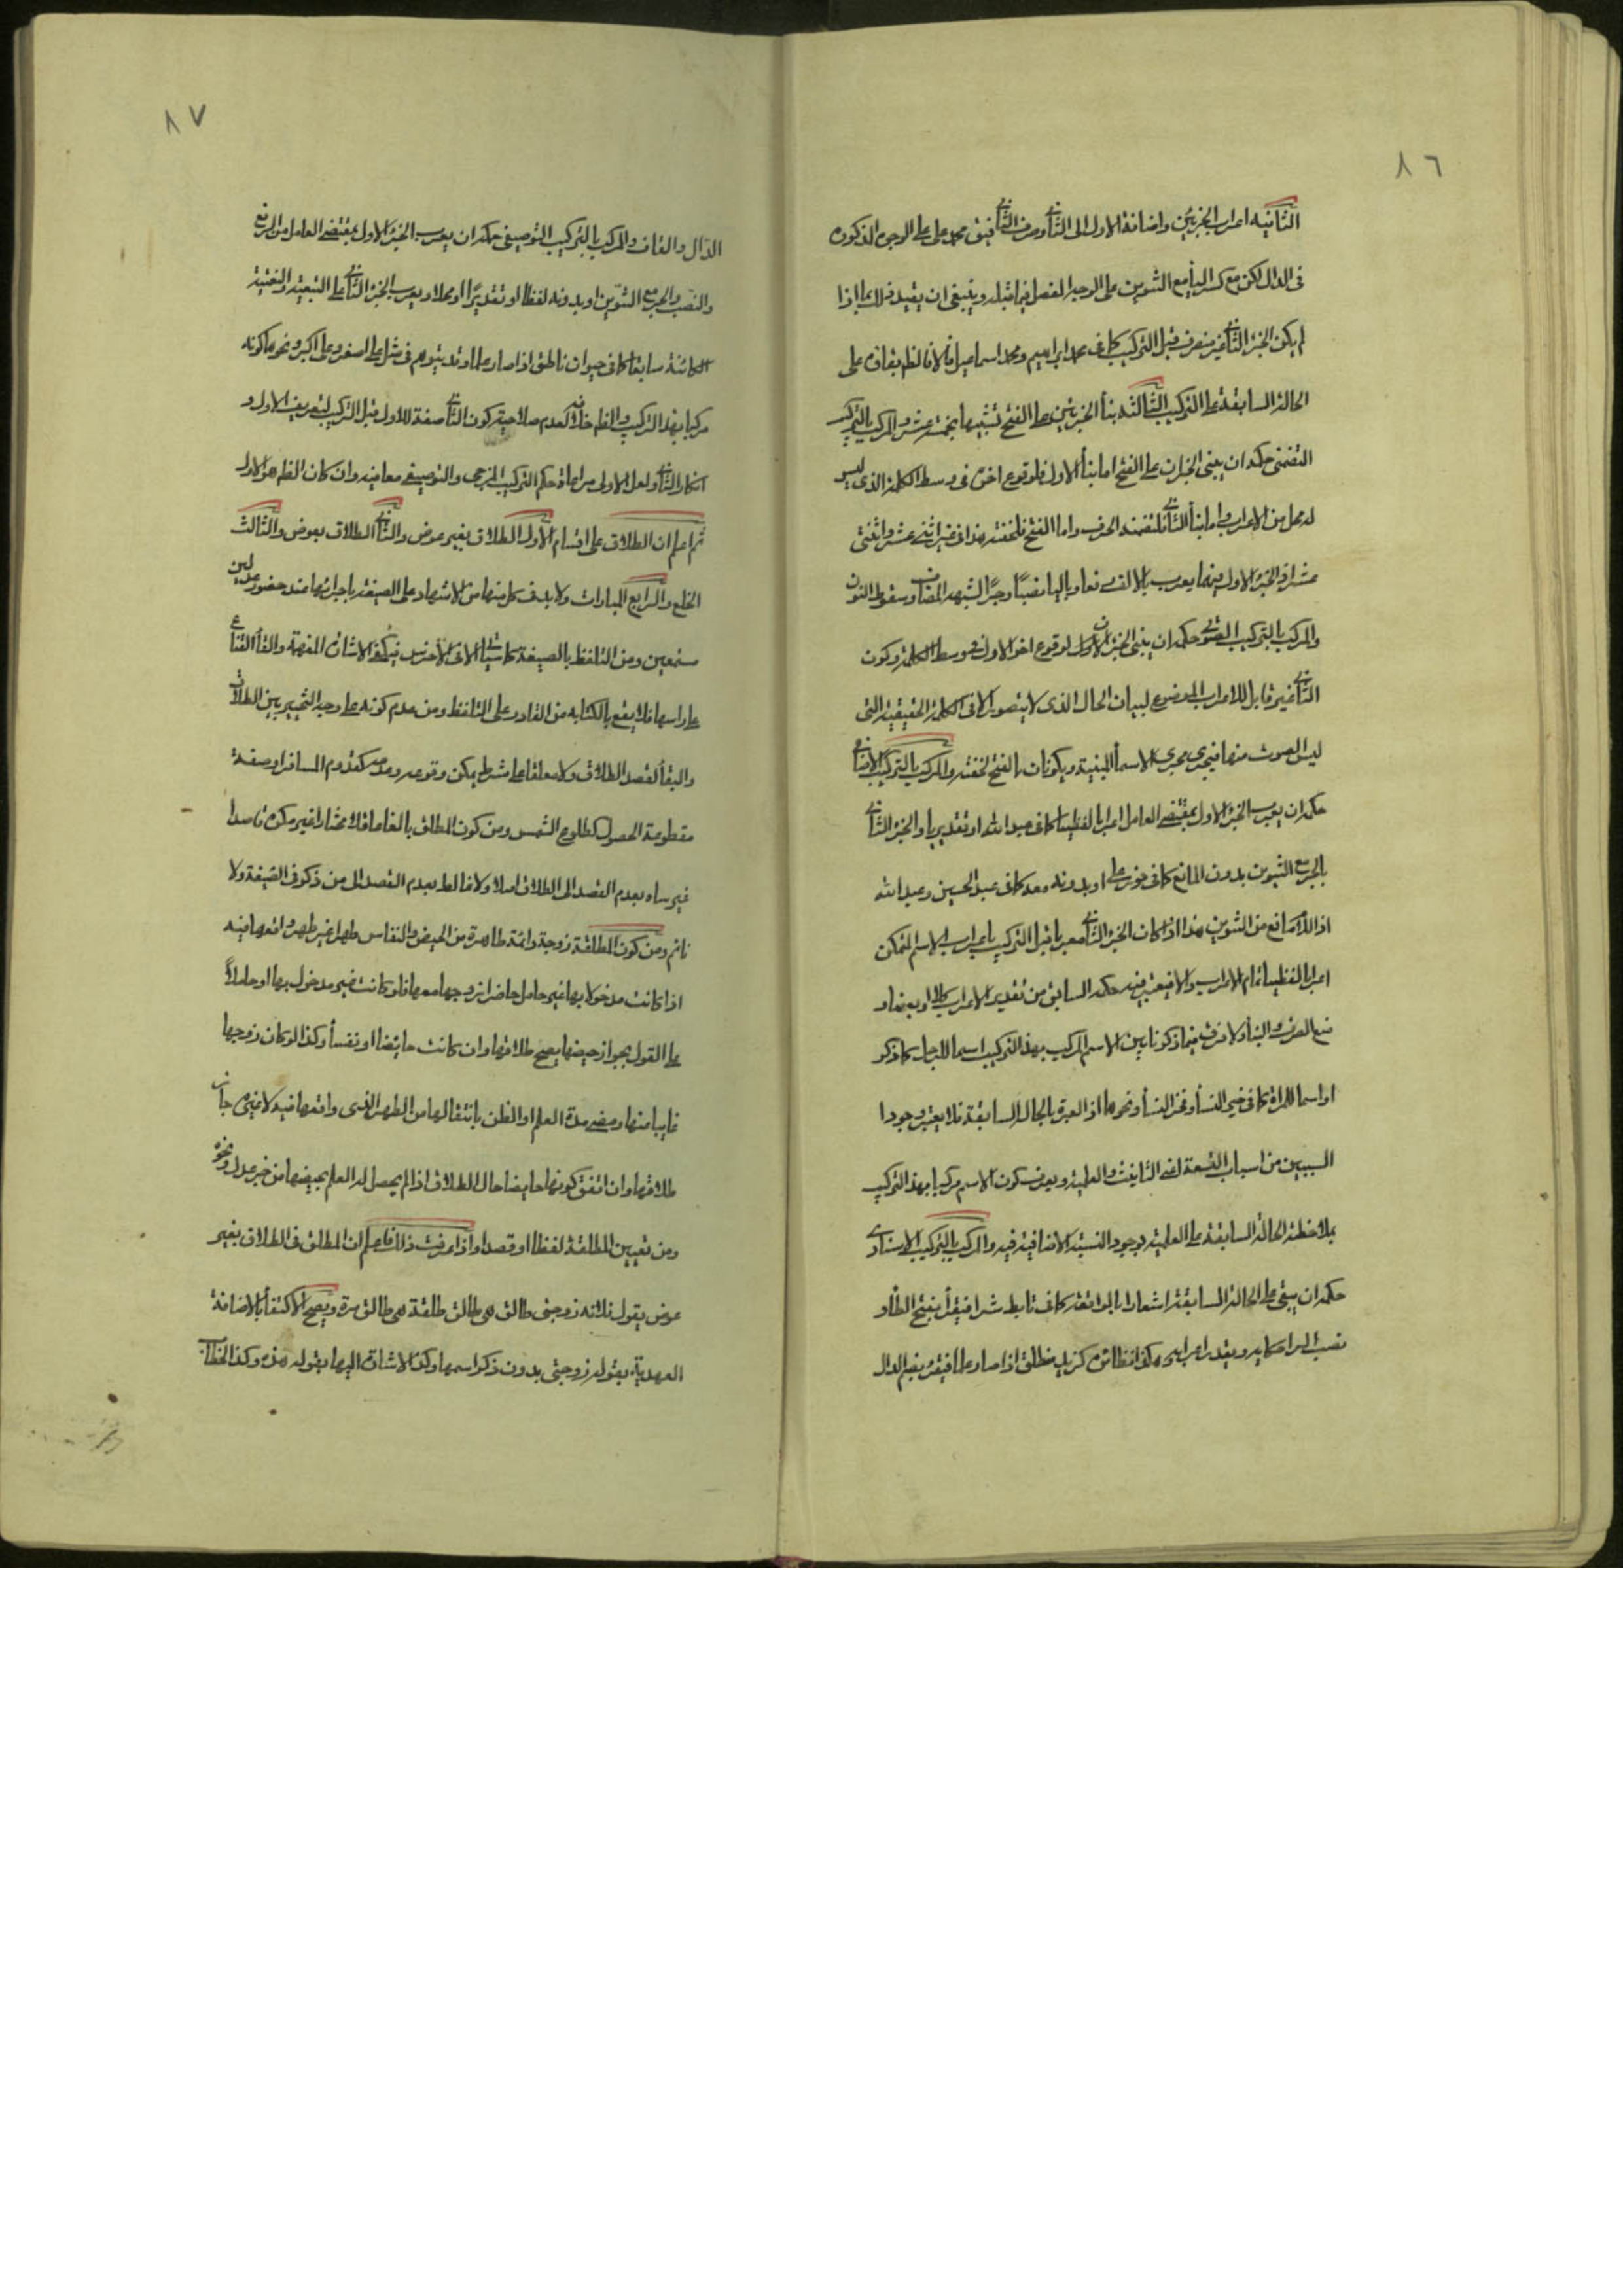 ٨٦
الثانيه اعراب الجزئين واضافة الاول الى الثانى وصرف الثانى فيق محمد على على الوجوه المذكوره
فى الدال لكن مع كسر اليأ مع التنوين على الوجه المفصل فيما قبله وينبغى ان يقيد ذلك بما اذا
لم يكن الجزء الثانى غير منصرف قبل التركيب كما فى محمد ابراهيم ومحمد اسماعيل والا فالظ بقاؤه على
الحالة السابقة على التركيب الثالثه بنأ الجزئين على الفتح تشبيها بخمسة عشر والمركب بالتركيب
التضمنى حكمه ان يبنى الجزان على الفتح اما بنأ الاول فلوقوع اخره فى وسط الكلمة الذى ليس
له محل من الاعراب واما بنأ الثانى فلتضمنه الحرف واما الفتح فلخفته هذا فى غير اثنى عشر واثنتى
عشرة اذ الجزء الاول فيهما يعرب بالالف رفعا وباليأ نصبا وجرا لشبهه المضاف وسقوط النون
والمركب بالتركيب الصوتى حكمه ان يبنى الجزء الاول لوقوع اخر الاول فى وسط الكلمة وكون
الثانى غير قابل للاعراب الموضوع لبيان الحال الذى لا يتصور الا فى الكلمة الحقيقية التى
ليس الصوت منها فيجرى مجرى الاسمأ المبنية ويكونان بالفتح لخفته والمركب بالتركيب الاضافى
حكمه ان يعرب الجزء الاول بمقتضى العامل اعرابا لفظيا كما فى عبد الله او تقديريا والجزء الثانى
بالجر مع التنوين بدون المانع كما فى خير على او بدونه معه كما فى عبد الحسين وعبد الله
اذ اللام مانع من التنوين هذا اذا كان الجزء الثانى معربا قبل التركيب باعراب الاسم المتمكن
اعرابا لفظيا تام الاعراب والا فيعتبر فيه حكمه السابق من تقدير الاعراب كلا او بعضا و
منع الصرف والبنأ ولا فرق فيما ذكرنا بين الاسم المركب بهذا التركيب اسما للرجل كما ذكر
او اسما للمرأة كما فى خير النسأ وفخر النسأ ونحوهما اذ العبرة بالحالة السابقة فلا يعتبر وجودا
السببين من اسباب التسعة اعنى التأنيث والعلمية ويعرف كون الاسم مركبا بهذا التركيب
بملاحظة الحالة السابقة على العلمية بوجود النسبة الاضافية فيه والمركب بالتركيب الاسنادى
حكمه ان يبقى على الحالة السابقة اشعارا بالواقعة كما فى تابط شرا فيقرأ بفتح الطأ و
نصب الرأ حكاية ويقدر اعرابه وكذا نظائره كزيد منطلق اذا صار علما فيقرء بضم الدال
٨٧
الدال والقاف والمركب بالتركيب التوصيفى حكمه ان يعرب الجزء الاول بمقتضى العامل من الرفع
والنصب والجر مع التنوين او بدونه لفظا او تقديرا او محلا ويعرب الجزء الثانى على التبعية والنعتية
الكائنة سابقا كما فى حيوان ناطق اذا صار علما وقد يتوهم فى مثل على اصغر وعلى اكبر ونحوهما كونه
مركبا بهذا التركيب والظ خلافه لعدم صلاحية كون الثانى صفة للاول قبل التركيب لتعريف الاول و
انكار الثانى ولعل الاولى مراعاة حكم التركيب المزجى والتوصيفى معا فيه وان كان الظ هو الاول
ثم اعلم ان الطلاق على اقسام الاول الطلاق بغير عوض والثانى الطلاق بعوض والثالث
الخلع والرابع المبارات ولا بد فى كل منها من الاشهاد على الصيغة باجرائها عند حضور عدلين
مستمعين ومن التلفظ بالصيغة كما سياتى الا فى الاخرس فيكفى الاشارة المفهمة والقأ القناع
على راسها فلا يقع بالكتابه من القادر على التلفظ ومن عدم كونه على وجه التخيير بين الطلاق
والبقأ لقصد الطلاق ولا معلقا على شرط يمكن وقوعه وعدمه كقدوم المسافر او صفة
مقطوعة الحصول كطلوع الشمس ومن كون المطلق بالغا عاقلا مختارا غير مكره قاصدا
غير ساه بعدم القصد الى الطلاق اصلا ولا غالط بعدم القصد الى من ذكر فى الصيغة ولا
نائم ومن كون المطلقة زوجة دائمة طاهرة من الحيض والنفاس طهرا غير طهر واقعها فيه
اذا كانت مدخولا بها غير حامل حاضرا زوجها معها فلو كانت غير مدخول بها او حاملا
على القول بجواز حيضها يصح طلاقها وان كانت حائضا او نفسأ وكذا لو كان زوجها
غايبا منها ومضى مدة العلم او الظن بانتقالها من الطهر الذى واقعها فيه لاخر جاز
طلاقها وان اتفق كونها حايضا حال الطلاق اذا لم يحصل له العلم بحيضها من خبر عدل ونحوه
ومن تعيين المطلقة لفظا او قصدا واذا عرفت ذلك فاعلم ان المطلق فى الطلاق بغير
عوض يقول فلانه زوجتى طالق هى طالق طلقة هى طالق مرة ويصح الاكتفأ بالاضافة
العهدية بقوله زوجتى بدون ذكر اسمها وكذا الاشارة اليها بقوله هذه وكذا الخطاب